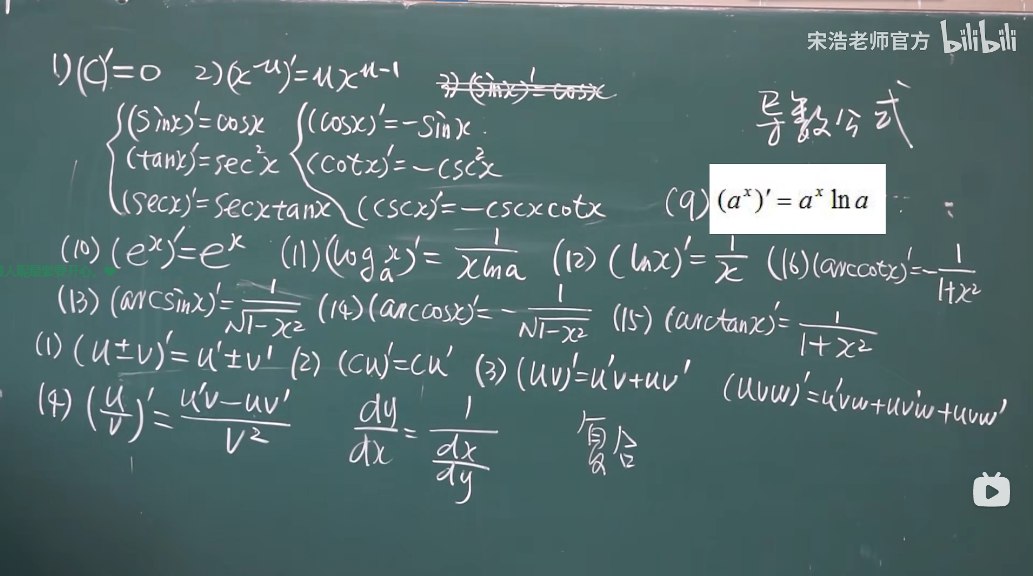 宋浩老师官方 bilibili
1) (C)'=0 2) (x^μ)'=μx^{μ-1} 3) (sinx)'=cosx
导数公式
(sinx)'=cosx (cosx)'=-sinx
(tanx)'=sec²x (cotx)'=-csc²x
(secx)'=secxtanx (cscx)'=-cscxcotx (9) (a^x)'=a^x ln a
(10) (e^x)'=e^x (11) (log_a x)'=1/(xlna) (12) (lnx)'=1/x (16) (arccotx)'=-1/(1+x²)
(13) (arcsinx)'=1/√(1-x²) (14) (arccosx)'=-1/√(1-x²) (15) (arctanx)'=1/(1+x²)
(1) (u±v)'=u'±v' (2) (Cu)'=Cu' (3) (uv)'=u'v+uv' (uvw)'=u'vw+uv'w+uvw'
(4) (u/v)'=(u'v-uv')/v² dy/dx=1/(dx/dy) 复合